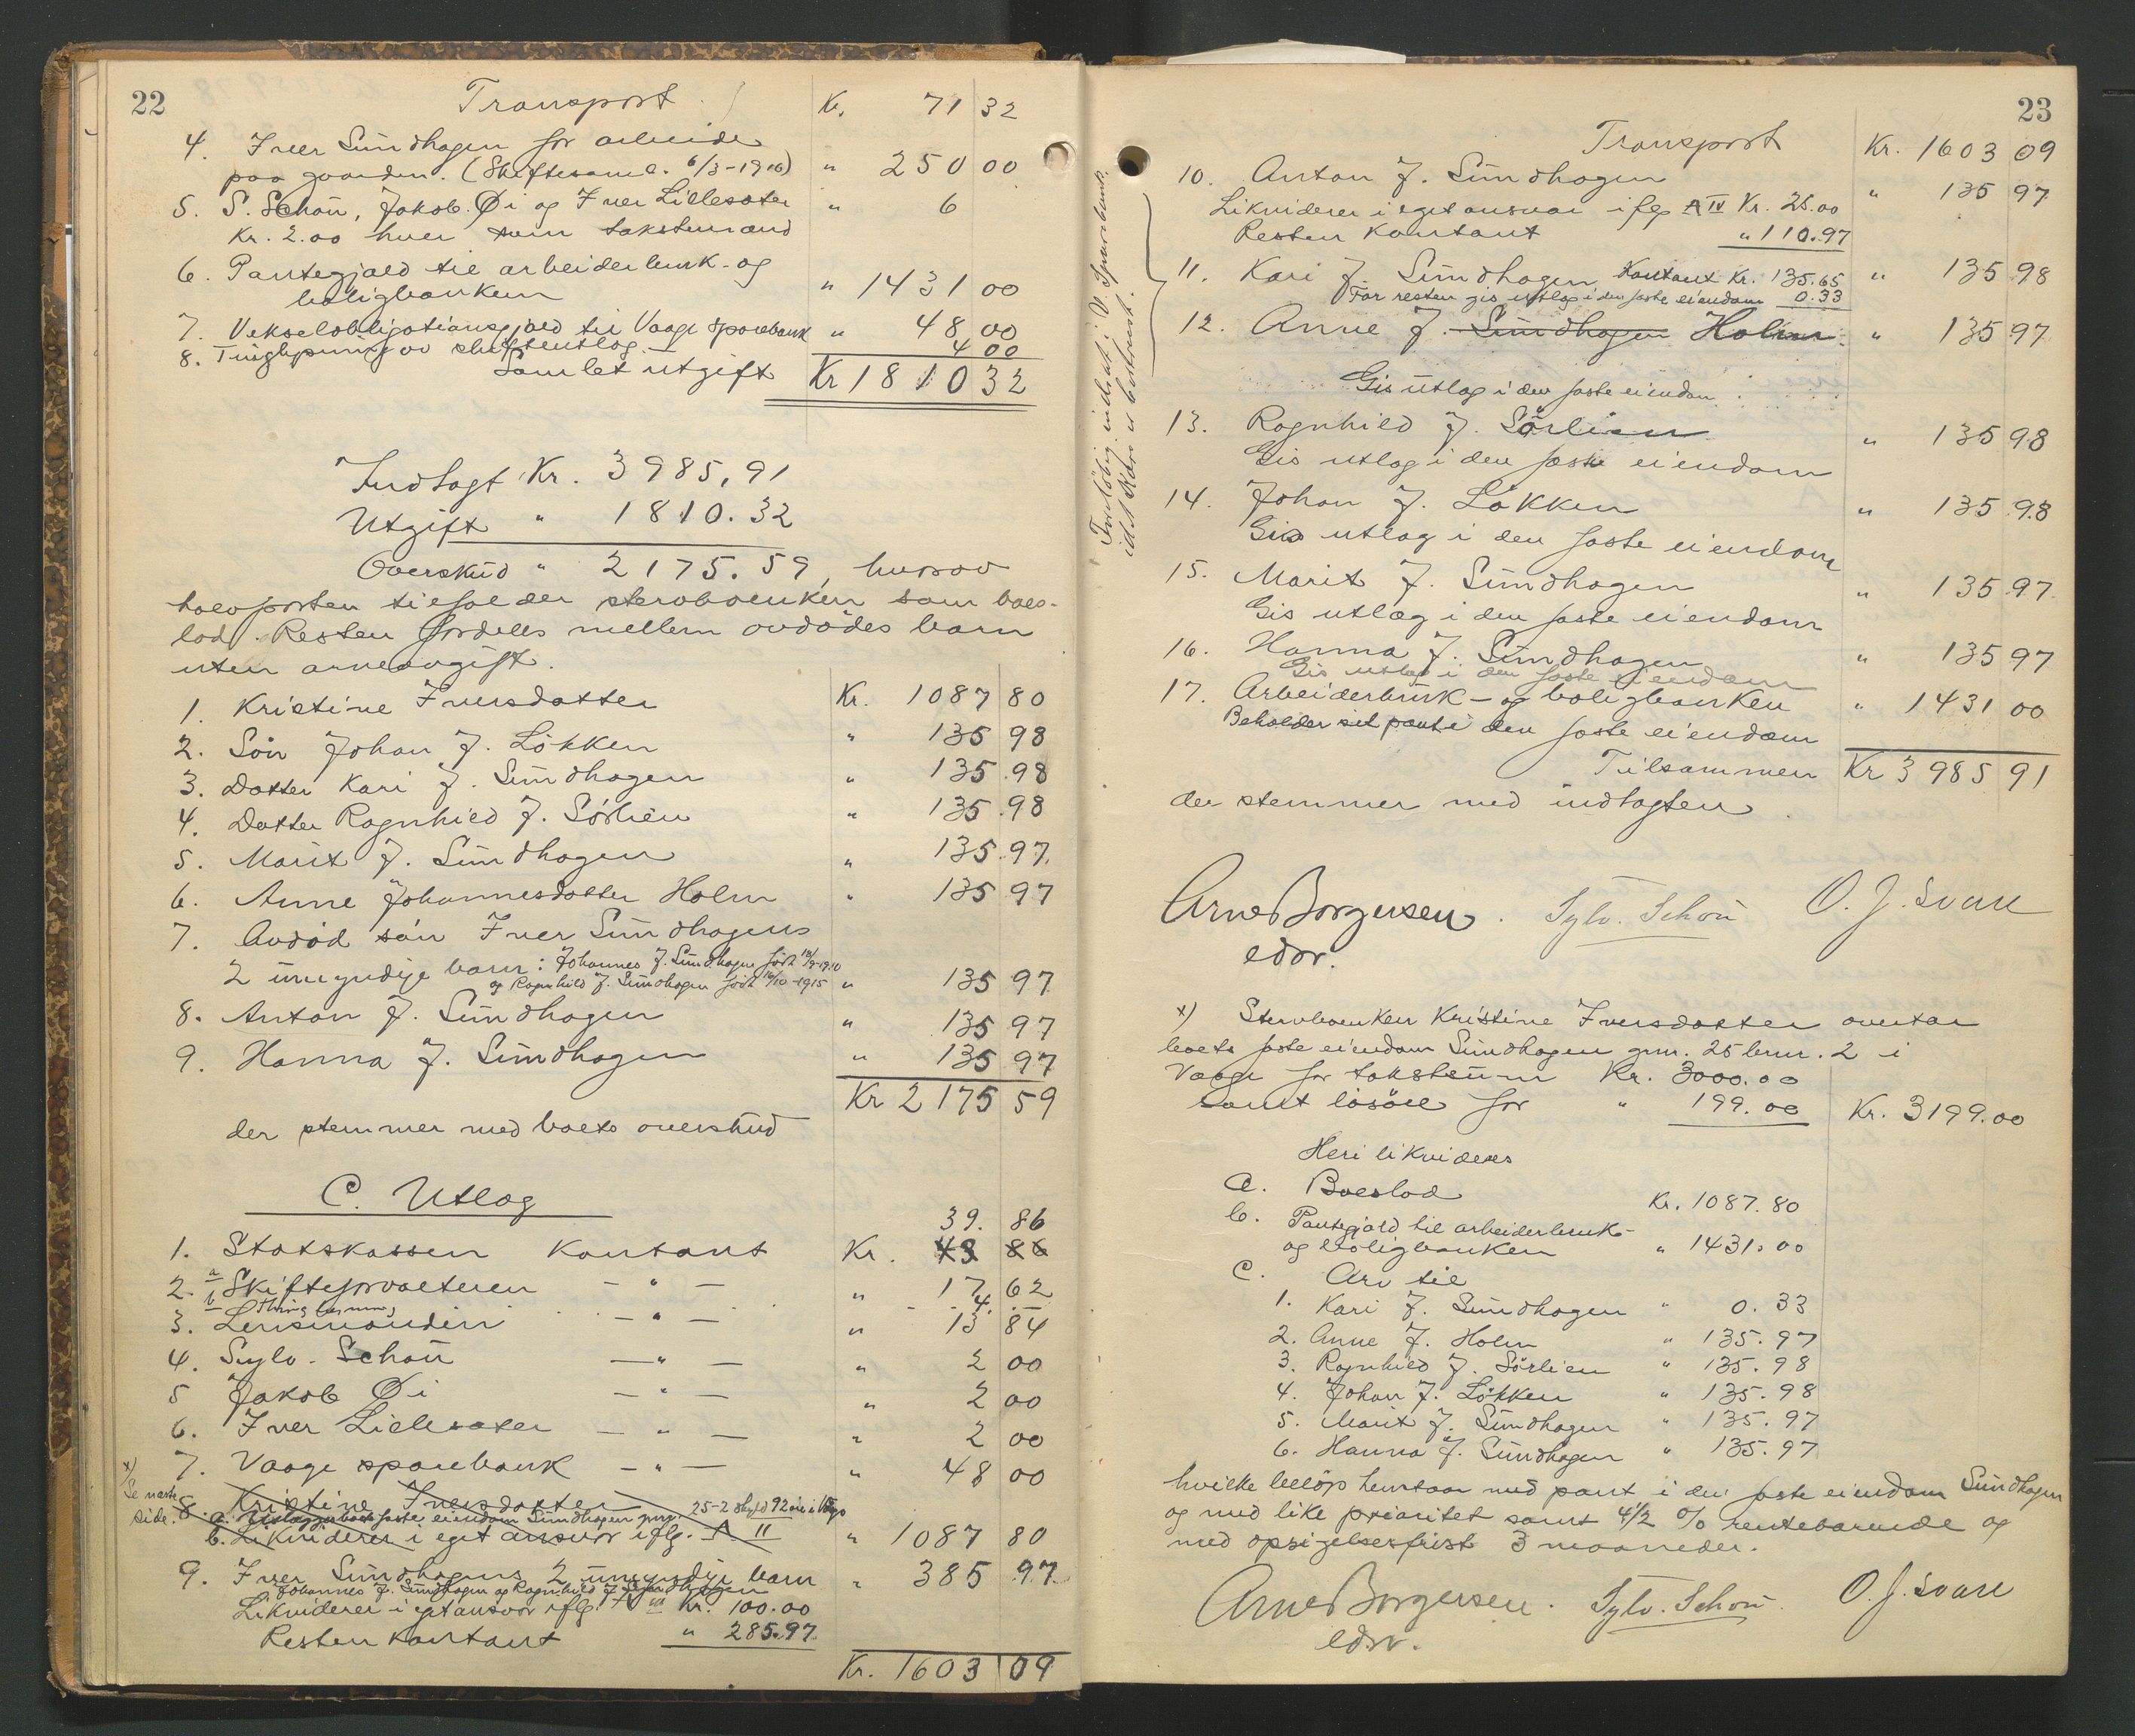 22
Transport Kr. 71 32
4. Iver Sundhagen for arbeide
paa gaarden. (Skiftesaml. 6/3-1916) " 250 00
5. S. Schøn, Jakob Øi og Iver Lillesæter " 6
Kr. 2.00 hver som takstmænd
6. Pantegjæld til arbeiderbruk- og
boligbanken " 1431 00
7. Vekselobligationsgjæld til Vaage sparebank " 48 00
8. Tinglysning av skifteutlæg 4 00
Samlet utgift Kr 1810 32
Indtægt Kr. 3985,91
Utgift " 1810.32
Overskud " 2175.59, hvorav
halvparten tilfalder sterboenken som boes-
lod. Resten fordeles mellem avdødes barn
uten arveavgift.
1. Kristine Iversdatter Kr. 1087 80
2. Søn Johan J. Løkken " 135 98
3. Datter Kari J. Sundhagen " 135 98
4. Datter Ragnhild J. Sørlien " 135 98
5. Marit J. Sundhagen " 135 97
6. Anne Johannesdatter Holm " 135 97
7. Avdød søn Iver Sundhagens
2 umyndige barn: Johannes J. Sundhagen født 1910
og Ragnhild J. Sundhagen født 16/10-1915 " 135 97
8. Anton J. Sundhagen " 135 97
9. Hanna J. Sundhagen " 135 97
Kr 2175 59
der stemmer med boets overskud
C. Utlæg
39. 86
1. Statskassen kontant Kr. 43 86
2. a Skifteforvalteren – " – " 17 62
b Thinglysning 4. –
3. Lensmanden – " – " 13 84
4. Sylv. Schøn – " – " 2 00
5 Jakob Øi – " – " 2 00
6. Iver Lillesæter – " – " 2 00
7. Vaage sparebank – " – " 48 00
x) Se næste side.
8. Kristine Iversdatter
a. Utlægges boets faste eiendom Sundhagen gnr. 25-2 skyld 92 øre i Vaage
b. Likviderer i eget ansvar iflg. A II " 1087 80
9. Iver Sundhagens 2 umyndige barn " 385 97
Johannes J. Sundhagen og Ragnhild J. Sundhagen
Likviderer i eget ansvar iflg. A III Kr. 100.00
Resten kontant " 285.97
Kr. 1603 09
23
Transport Kr. 1603 09
10. Anton J. Sundhagen " 135 97
Likviderer i eget ansvar iflg A IV Kr. 25.00
Resten kontant " 110.97
11. Kari J. Sundhagen Kontant Kr. 135.65 " 135 98
For resten gis utlæg i den faste eiendom 0.33
12. Anne J. Sundhagen Holm " 135 97
Gis utlæg i den faste eiendom
Foreløbig indsat i V. Sparebank
13. Ragnhild J. Sørlien " 135 98
Gis utlæg i den faste eiendom
14. Johan J. Løkken " 135 98
Gis utlæg i den faste eiendom
15. Marit J. Sundhagen " 135 97
Gis utlæg i den faste eiendom
16. Hanna J. Sundhagen " 135 97
Gis utlæg i den faste eiendom
17. Arbeiderbruk- og boligbanken " 1431 00
Beholder sit pant i den faste eiendom
Tilsammen Kr 3985 91
der stemmer med indtægten
Arne Borgersen. Sylv. Schøn O. J. Svare
edsv.
x) Stervboenken Kristine Iversdatter overtar
boets faste eiendom Sundhagen gnr. 25 bnr. 2 i
Vaage for takstsum Kr. 3000.00
samt løsøre for " 199.00 Kr. 3199.00
Heri likvideres
a. Boeslod Kr. 1087.80
b. Pantegjæld til arbeiderbruk-
og boligbanken " 1431.00
c. Arv til
1. Kari J. Sundhagen " 0.33
2. Anne J. Holm " 135.97
3. Ragnhild J. Sørlien " 135.98
4. Johan J. Løkken " 135.98
5. Marit J. Sundhagen " 135.97
6. Hanna J. Sundhagen " 135.97
hvilke beløp henstaar med pant i den faste eiendom Sundhagen
og med like prioritet samt 4 1/2 % rentebærende og
med opsigelsesfrist 3 maaneder.
Arne Borgersen. Sylv. Schøn. O. J. Svare
edsv.